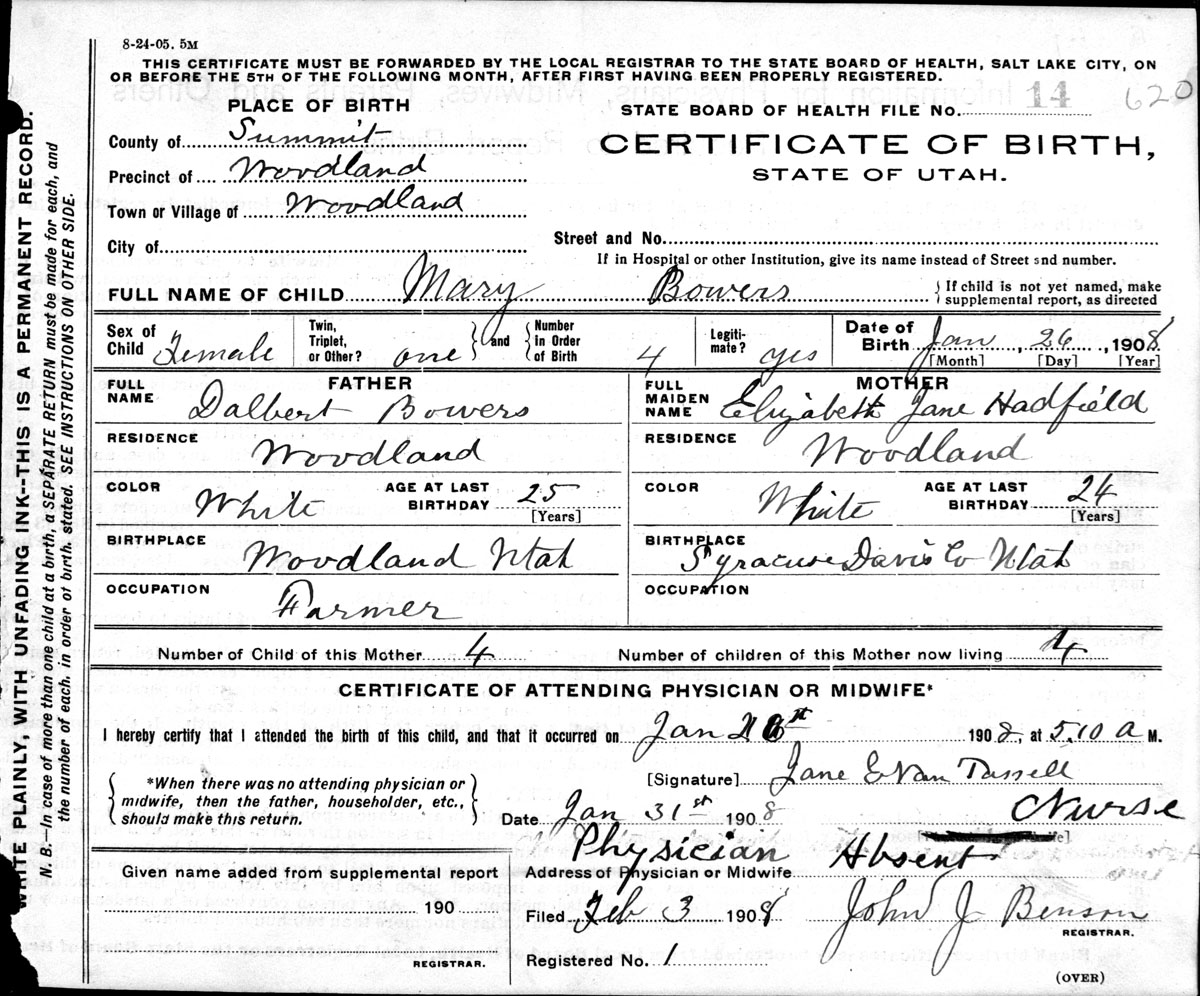 8-24-05. 5M
THIS CERTIFICATE MUST BE FORWARDED BY THE LOCAL REGISTRAR TO THE STATE BOARD OF HEALTH, SALT LAKE CITY, ON
OR BEFORE THE 5TH OF THE FOLLOWING MONTH, AFTER FIRST HAVING BEEN PROPERLY REGISTERED.
PLACE OF BIRTH
STATE BOARD OF HEALTH FILE No. 14 620
County of Summit
CERTIFICATE OF BIRTH,
Precinct of Woodland
STATE OF UTAH.
Town or Village of Woodland
City of
Street and No.
If in Hospital or other Institution, give its name instead of Street and number.
FULL NAME OF CHILD Mary Bowers
If child is not yet named, make
supplemental report, as directed
Sex of
Child Female
Twin,
Triplet,
or Other? one
and
Number
in Order
of Birth 4
Legiti-
mate? yes
Date of
Birth Jan, 26, 1908
[Month] [Day] [Year]
FATHER
FULL
NAME Dalbert Bowers
MOTHER
FULL
MAIDEN
NAME Elizabeth Jane Hadfield
RESIDENCE Woodland
RESIDENCE Woodland
COLOR White
AGE AT LAST
BIRTHDAY 25
[Years]
COLOR White
AGE AT LAST
BIRTHDAY 24
[Years]
BIRTHPLACE Woodland Utah
BIRTHPLACE Syracuse Davis Co Utah
OCCUPATION Farmer
OCCUPATION
Number of Child of this Mother 4
Number of children of this Mother now living 4
CERTIFICATE OF ATTENDING PHYSICIAN OR MIDWIFE*
I hereby certify that I attended the birth of this child, and that it occurred on Jan 1908, at 5.10 a M.
*When there was no attending physician or
midwife, then the father, householder, etc.,
should make this return.
[Signature] Jane E Van Tassell
Date Jan 31st 1908 Nurse
Physician Absent
Address of Physician or Midwife
Given name added from supplemental report
190
REGISTRAR.
Filed Feb 3 1908 John J Benson
REGISTRAR.
Registered No. 1
(OVER)
WRITE PLAINLY, WITH UNFADING INK--THIS IS A PERMANENT RECORD.
N. B.—In case of more than one child at a birth, a SEPARATE RETURN must be made for each, and
the number of each, in order of birth, stated. SEE INSTRUCTIONS ON OTHER SIDE.